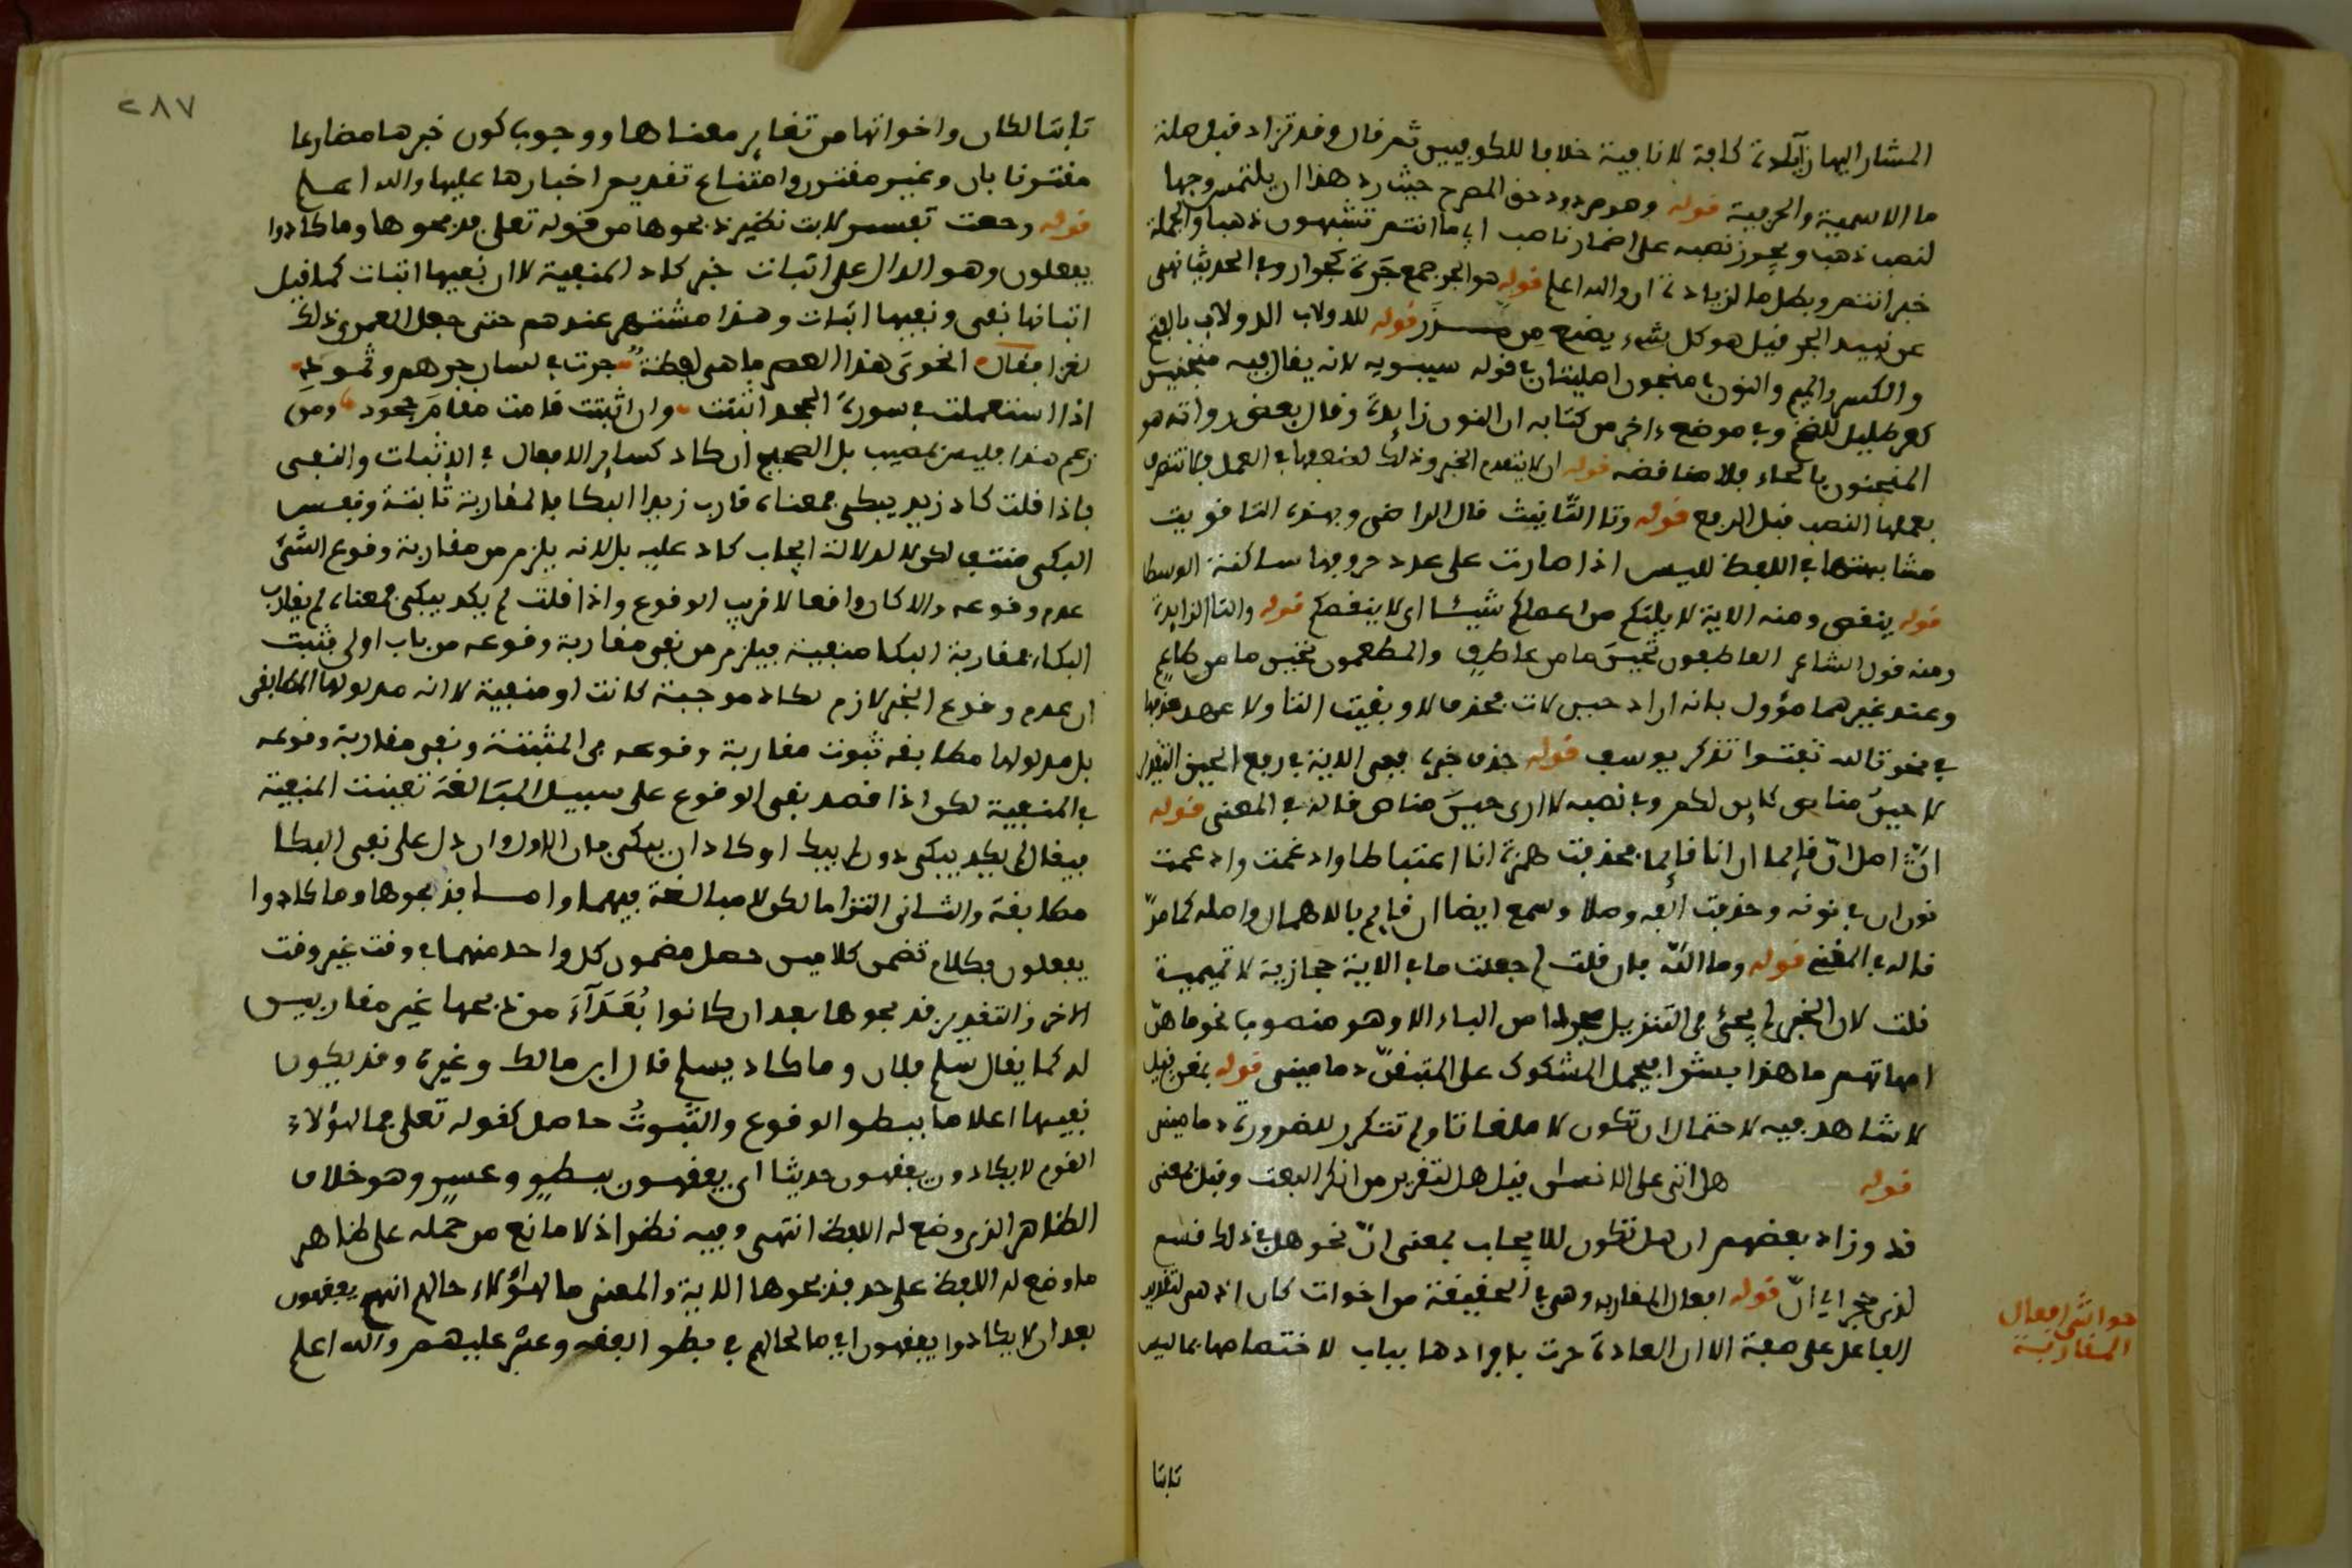 المشار اليها زآئدة كافة لا نافية خلافا للكوفيين ثم قال وقد تزاد قبل صلة
ما الاسمية والحرفية قوله وهو مردود حق المصرح حيث رد هذا ان يلتمس وجها
لنصب ذهب ويجوز نصبه على اضمار ناصب اي ما انتم تشبهون ذهبا والجملة
خبر انتم وبطل ما لزيادة ان والله اعلم قوله هو الجر جمع جرة كجرار وفي الحديث نهى
عن نبيذ الجر قيل هو كل شيء يصنع من مدر قوله للدولاب الدولاب بالفتح
والكسر والميم والنون في منجنون اصليتان في قوله سيبويه لانه يقال فيه منجنين
كعرطليل للضخم وفي موضع ءاخر من كتابه ان النون زايدة وقال بعض رواته هو
المنحنون بالحاء فلا مناقضه قوله ان لا يتقدم الخبر وذلك لضعفها في العمل فلا تتصرف
بعملها النصب قبل الرفع قوله وتا التأنيث قال الراضى وبهذه التا قويت
مشابهتها في اللفظ لليس اذا صارت على عدد حروفها ساكنة الوسط
قوله ينقص ومنه الاية لا يلتكم من اعملكم شيئا اى لا ينقصكم قوله والتا الزايدة
ومنه قول الشاعر العاطفون تحين ما من عاطف والمطعمون تحين ما من طاعم
وعند غيرهما مؤول بانه اراد حين لات فحذف لا وبقيت التا ولا عهد حذفها
في نحو تالله تفتئوا تذكر يوسف قوله حذف خبره ففى الاية في رفع الحين التقدير
لا حين مناص كاين لكم وفي نصبه لا ارى حين مناص قاله في المعنى قوله
ان اصل ان قايما ان انا قايما فحذفت همزة انا اعتباطا وادغمت وادغمت
نون ان في نونه وحذفت الفه وصلا وسمع ايضا ان قايم بالاهمال واصله كما مر
قاله في المغنى قوله وما الله فان قلت لم جعلت ما في الاية حجازية لا تميمية
قلت لان الخبر لم يجئ في التنزيل مجردا من الباء الا وهو منصوب نحو ما هن
امهاتهم ما هذا بشرا فيحمل المشكوك على المتيقن دمامينى قوله بمغن فتيل
لا شاهد فيه لاحتمال ان تكون لا ملغاتا ولم تتكرر للضرورة دمامينى
قوله هل اتى على الانسان قيل هل لتقرير من انكر البعث وقيل بمعنى
قد وزاد بعضهم ان هل تكون للايجاب بمعنى ان نحو هل في ذلك قسم
لذى حجر اي ان قوله افعال المقاربه وهى في الحقيقة من اخوات كان اذ هى لتقرير
الفاعل على صفة الا ان العادة جرت بافرادها بباب لاختصاصها بما ليس
حواشى افعال
المقاربة
ثابتا
٢٨٧
ثابتا لكان واخواتها من تغاير معناها ووجوب كون خبرها مضارعا
مقترنا بان وغير مقترن وامتناع تقديم اخبارها عليها والله اعلم
قوله وجعت تفسير لابت نظير فذبحوها من قوله تعلى فذبحوها وما كادوا
يفعلون وهو الدال على اثبات خبر كاد المنفية لا ان نفيها اثبات كما قيل
اثباتها نفى ونفيها اثبات وهذا مشتهر عندهم حتى جعل المعرى ذلك
لغزا فقال انحوى هذا العصر ما هى لفظة جرت في لسان جرهم وثمود
اذا استعملت في صورة الجحد اثبتت وان اثبتت قامت مقام جحود ومن
زعم هذا فليس بمصيب بل الصحيح ان كاد كساير الافعال في الاثبات والنفى
فاذا قلت كاد زيد يبكى فمعناه قارب زيد البكا فالمقاربة ثابتة ونفس
البكى منتف لكن لا لدلالة ايجاب كاد عليه بل لانه يلزم من مقاربة وقوع الشئ
عدم وقوعه والا كان واقعا لا قريب الوقوع واذا قلت لم يكد يبكى فمعناه لم يقارب
البكاء فمقاربة البكا منفية فيلزم من نفى مقاربة وقوعه من باب اولى فثبت
ان عدم وقوع الخبر لازم لكاد موجبة كانت او منفية لا انه مدلولها المطابقى
بل مدلولها مطابقه ثبوت مقاربة وقوعه في المثبتة ونفى مقاربة وقوعه
في المنفية لكن اذا قصد نفى الوقوع على سبيل المبالغة تعينت المنفية
فيقال لم يكد يبكى دون لم يبك او كاد ان يبكى فان الاول وان دل على نفى البكا
مطابقة والثانى التزاما لكن لا مبالغة فيهما واما فذبحوها وما كادوا
يفعلون فكلام تضمن كلامين حصل مضمون كل واحد منهما في وقت غير وقت
الاخر والتقدير فذبحوها بعد ان كانوا بعدآء من ذبحها غير مقاربين
له كما يقال سلم فلان وما كاد يسلم قال ابن مالك وغيره وقد يكون
نفيها اعلاما ببطو الوقوع والثبوت حاصل كقوله تعلى فمال هؤلاء
القوم لا يكادون يفقهون حديثا اى يفقهون ببطو وعسر وهو خلاف
الظاهر الذى وضع له اللفظ انتهى وفيه نظر اذ لا مانع من حمله على ظاهر
ما وضع له اللفظ على حد فذبحوها الاية والمعنى ما لهؤلاء حالهم انهم يفقهون
بعد ان لا يكادوا يفقهون اي ما لحالهم في بطو الفقه وعسره عليهم والله اعلم